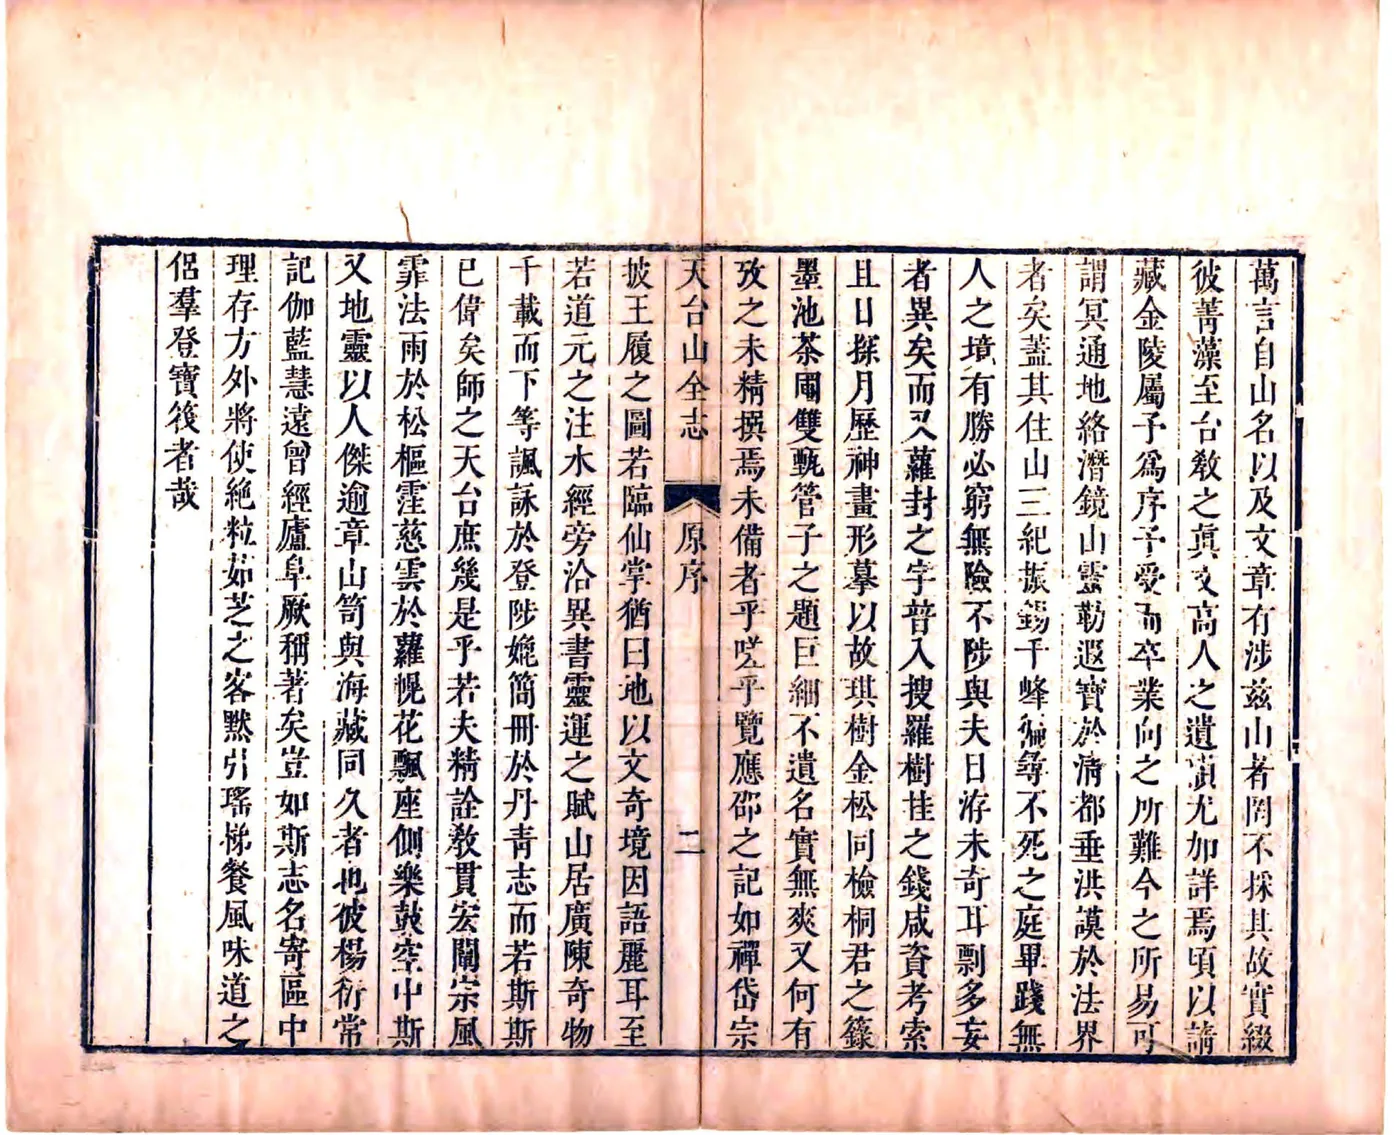 萬言自山名以及文章有涉兹山者罔不採其故實綴
彼菁藻至台敎之眞文高人之遺蹟尤加詳焉頃以請
藏金陵屬予爲序予受而卒業向之所難今之所易可
謂冥通地絡潛鏡山靈勒遐寶於淸都垂洪謨於法界
者矣蓋其住山三紀振錫千峰徧尋不死之庭畢踐無
人之境有勝必窮無險不陟與夫日游未奇耳剽多妄
者異矣而又蘿封之字普入搜羅樹挂之錢咸資考索
且日探月歷神畫形摹以故琪樹金松同檢桐君之籙
墨池茶圃雙甄管子之題巨細不遺名實無爽又何有
攷之未精撰焉未備者乎嗟乎覽應邵之記如禪岱宗
天台山全志
原序
二
披王履之圖若臨仙掌猶曰地以文奇境因語麗耳至
若道元之注水經旁洽異書靈運之賦山居廣陳奇物
千載而下等諷詠於登陟媲簡冊於丹靑志而若斯斯
已偉矣師之天台庶幾是乎若夫精詮敎貫宏闡宗風
霏法雨於松樞霔慈雲於蘿幌花飄座側樂鼓空中斯
又地靈以人傑逾章山笥與海藏同久者也彼楊衒常
記伽藍慧遠曾經廬阜厥稱著矣豈如斯志名寄區中
理存方外將使絶粒茹芝之客黙引瑤梯餐風味道之
侶羣登寶筏者哉